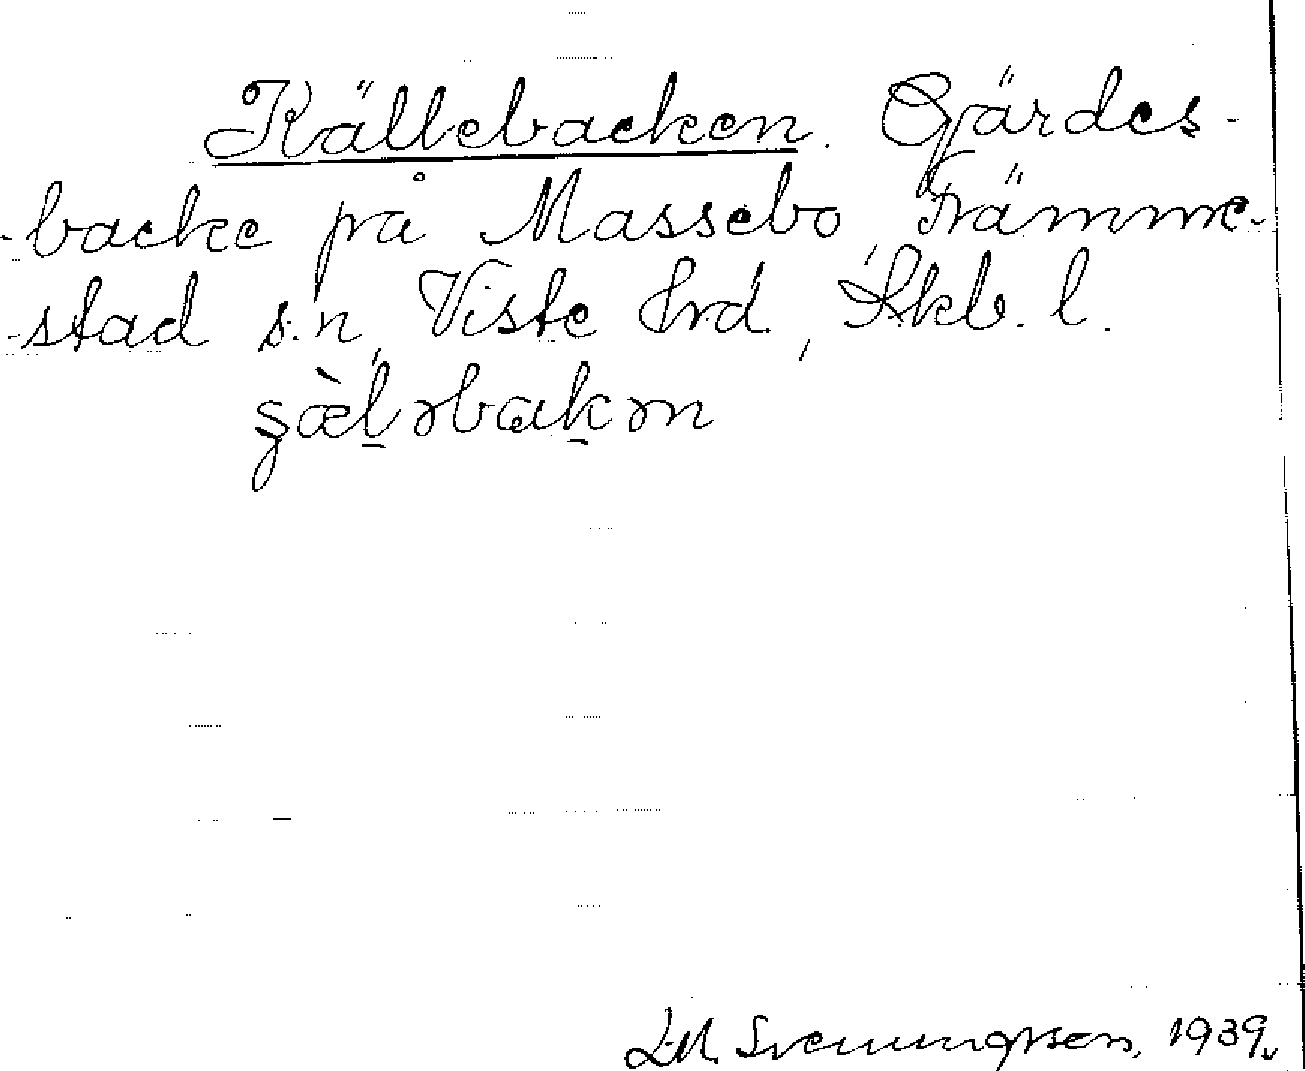 Källebacken. Gärdes-
-backe på Massebo, Främme-
-stad s:n, Viste hrd, Skb. l.
Svenungsson, 1939.